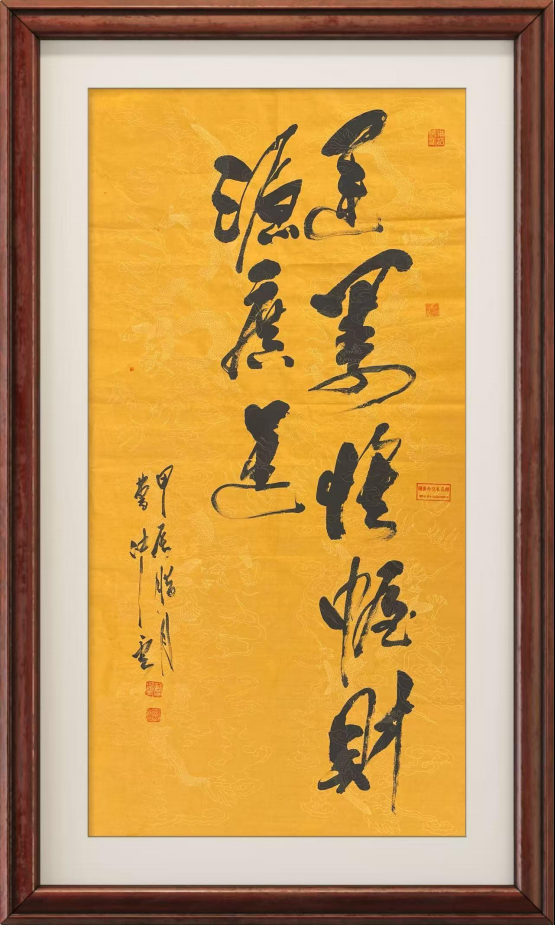 運籌帷幄財
源廣進
甲辰腊月